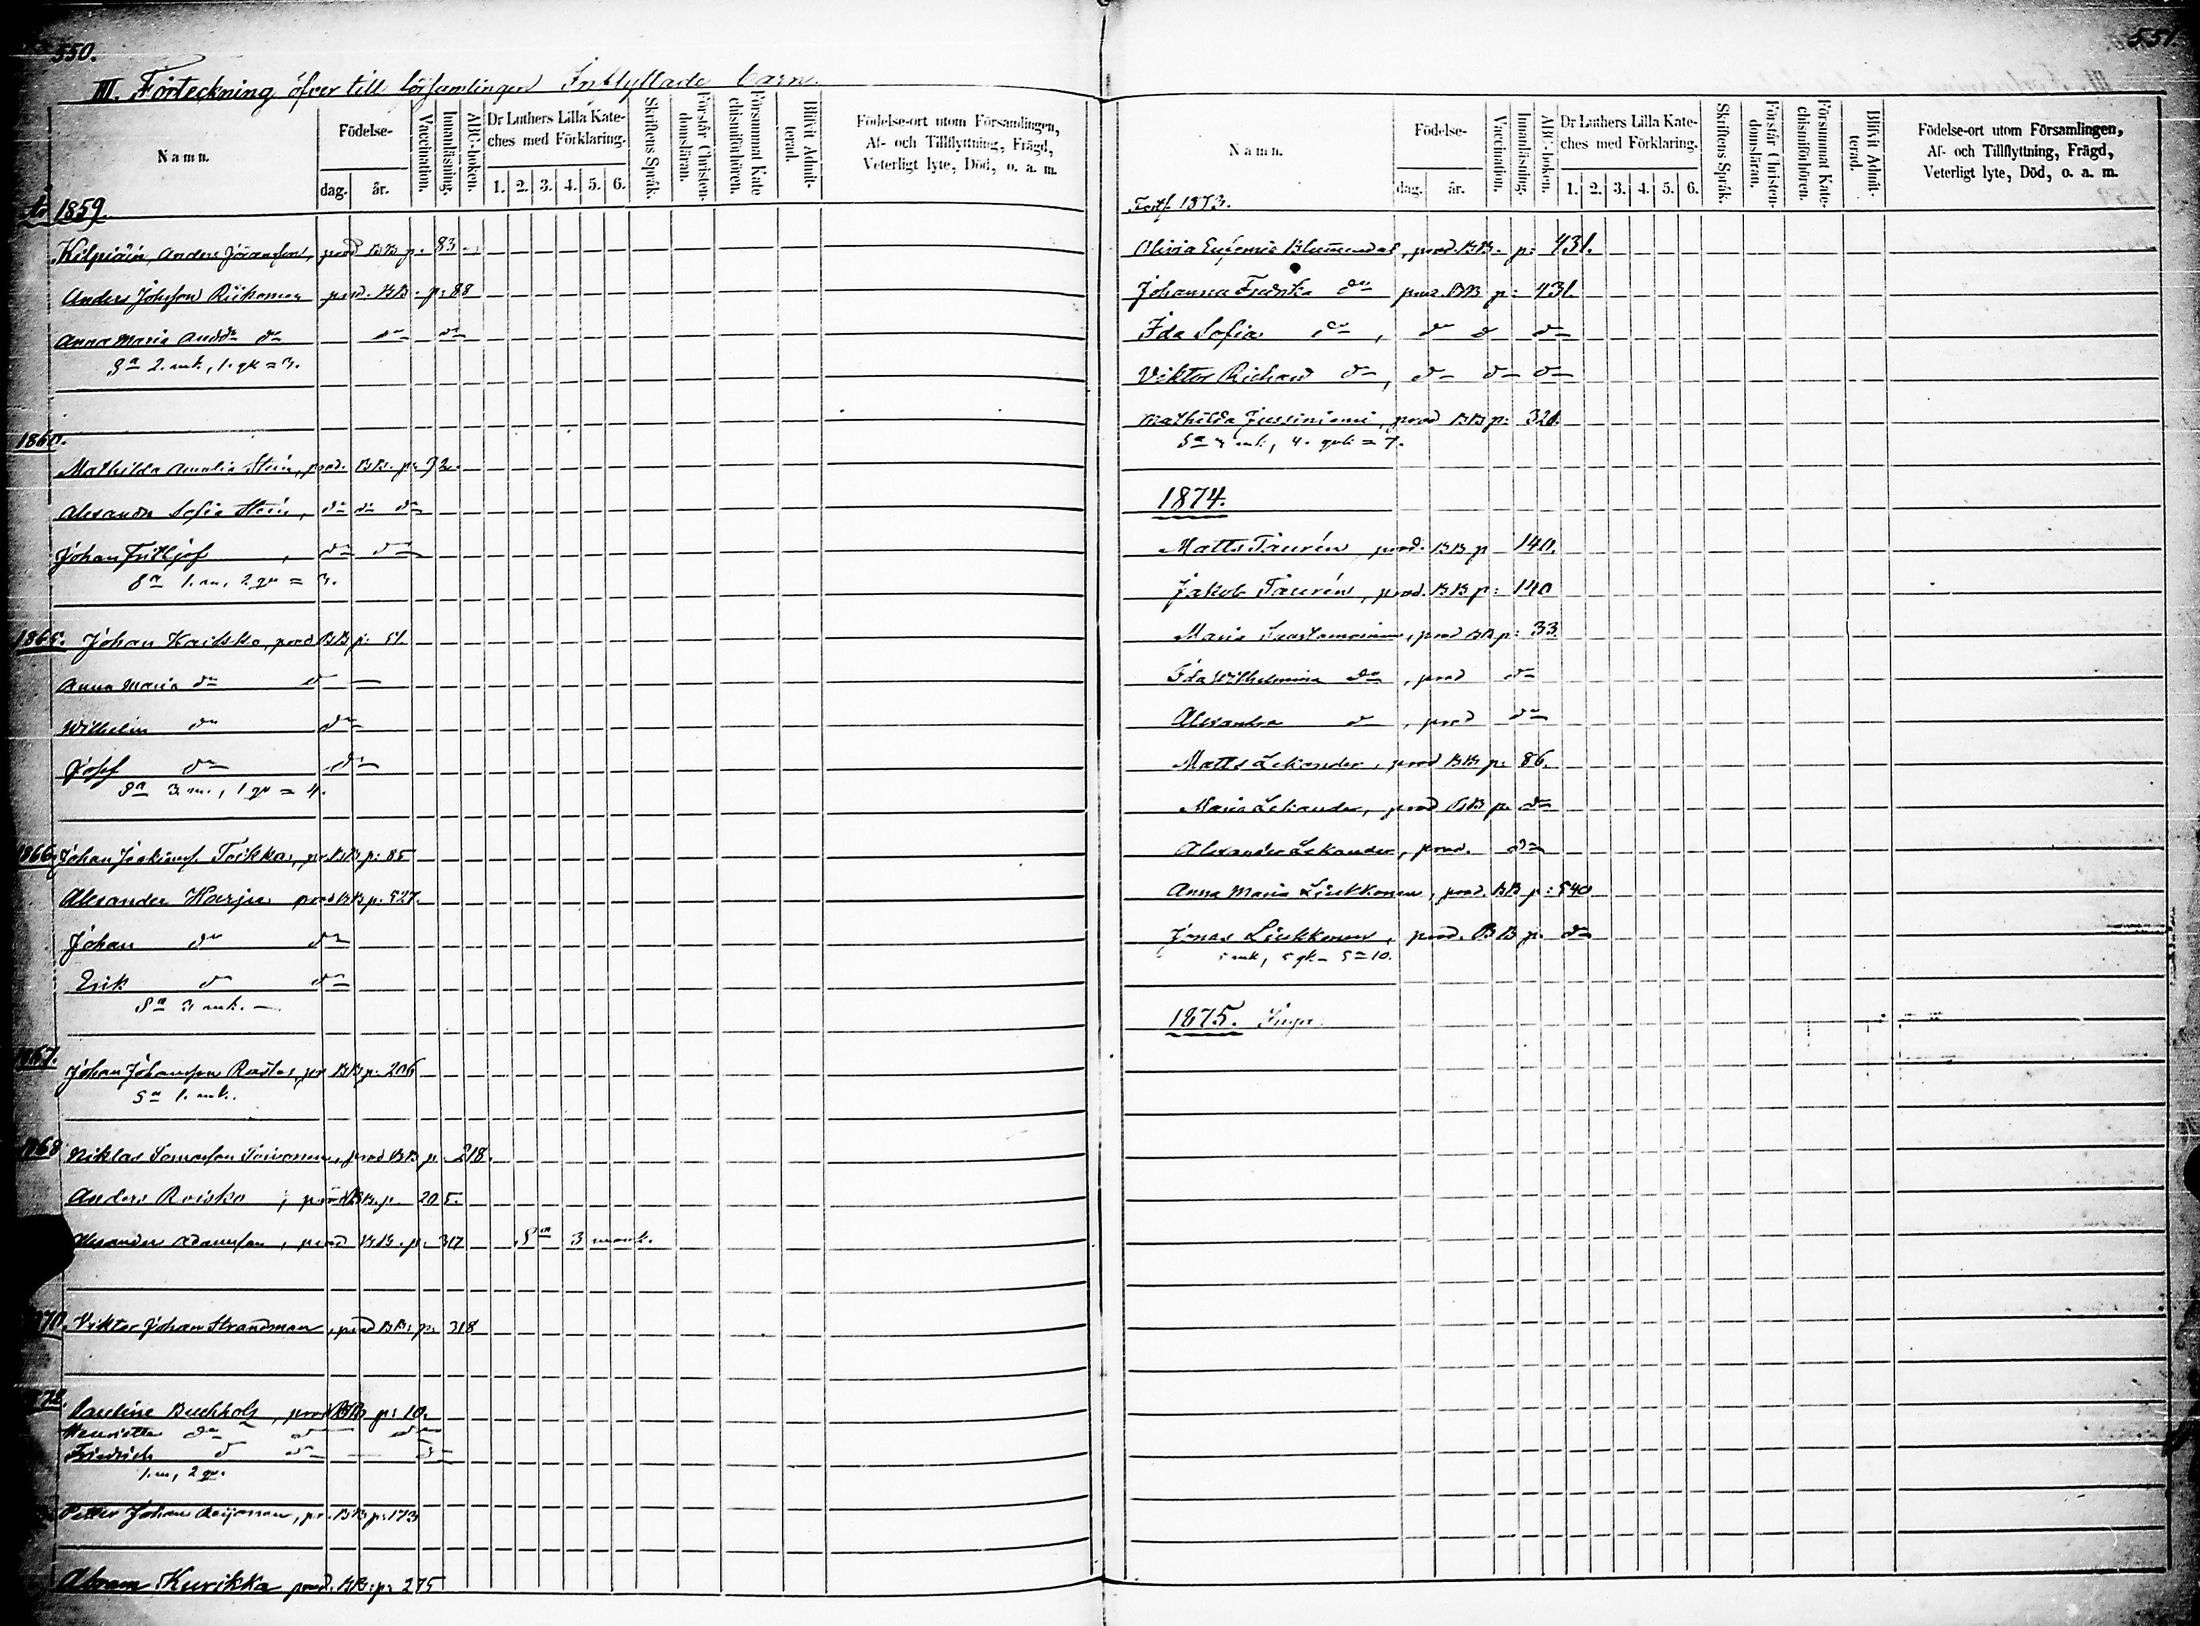 550.
III. Förteckning öfver till församlingen Inflyttade barn.
Namn.
Födelse-
dag.
år.
Vaccination.
Innanläsning.
ABC-boken.
Dr Luthers Lilla Kate-
ches med Förklaring.
1. 2. 3. 4. 5. 6.
Skriftens Språk.
Förstår Christen-
domsläran.
Försummat Kate-
chismiförhören.
Blifvit Admit-
terad.
Födelse-ort utom Församlingen,
Af- och Tillflyttning, Frägd,
Veterligt lyte, Död, o. a. m.
1859.
Anders prod BB p: 83
Anders Johsson prod. BB. p: 88
Anna Maria do do do
Sa 2. mk, 1. qk = 3.
1860.
Mathilda Amalia prod. BB. p: 72.
Sofia do do do
Johan Fritljof, do do
Sa 1. m, 2 qu = 3.
1865. Johan prod BB p: 51.
Anna Maria do do
Wilhelm do do
Josef do do
Sa 3. m., 1 qu = 4.
1866. Johan Toikka, pr. BB p: 85
Alexander Harju prod BB p. 527.
Johan do do
Erik do do
Sa 3 mk.
1867.
Johan Johansson pr BB p: 206
Sa 1. mk.
1868 Niklas prod BB p. 218.
Anders Roisko, prod BB. p. 205.
Alexander Adamsson, prod BB. p. 317 Sa 3 mank.
1870. Viktor Johan Strandman, prod BB: p: 318
Pauline Buchholz, prod BB p: 10.
Henriette do do do
Friedrich do do do
1. m, 2 qv.
Petter Johan pr. BB p: 173
Abram Kurikka prod. BB: p: 275
551.
Namn.
Födelse-
dag.
år.
Vaccination.
Innanläsning.
ABC-boken.
Dr Luthers Lilla Kate-
ches med Förklaring.
1. 2. 3. 4. 5. 6.
Skriftens Språk.
Förstår Christen-
domsläran.
Försummat Kate-
chismiförhören.
Blifvit Admit-
terad.
Födelse-ort utom Församlingen,
Af- och Tillflyttning, Frägd,
Veterligt lyte, Död, o. a. m.
Fortf. 1873.
Olivia Eufemia prod. BB. p: 431.
Johanna do prod. BB p: 431.
Ida Sofia do, do do do
Viktor Richard do, do do do
Mathilda Jussiniemi, prod BB p: 321.
Sa 3 mk, 4. qvk = 7.
1874.
Matts Taurén prod. BB p 140.
Jakob Taurén, prod. BB p: 140
Maria prod BB p: 33.
Ida Wilhelmina do, prod do
Alexandra do, prod do
Matts Lekander, prod BB p: 86.
Maria Lekander, prod BB p. do
Alexander Lekander, prod. do
Anna Maria Liukkonen, prod. BB p: 540
Jonas Liukkonen, prod. BB p. do
5 mk, 5 qk = Sa 10.
1875. Inga